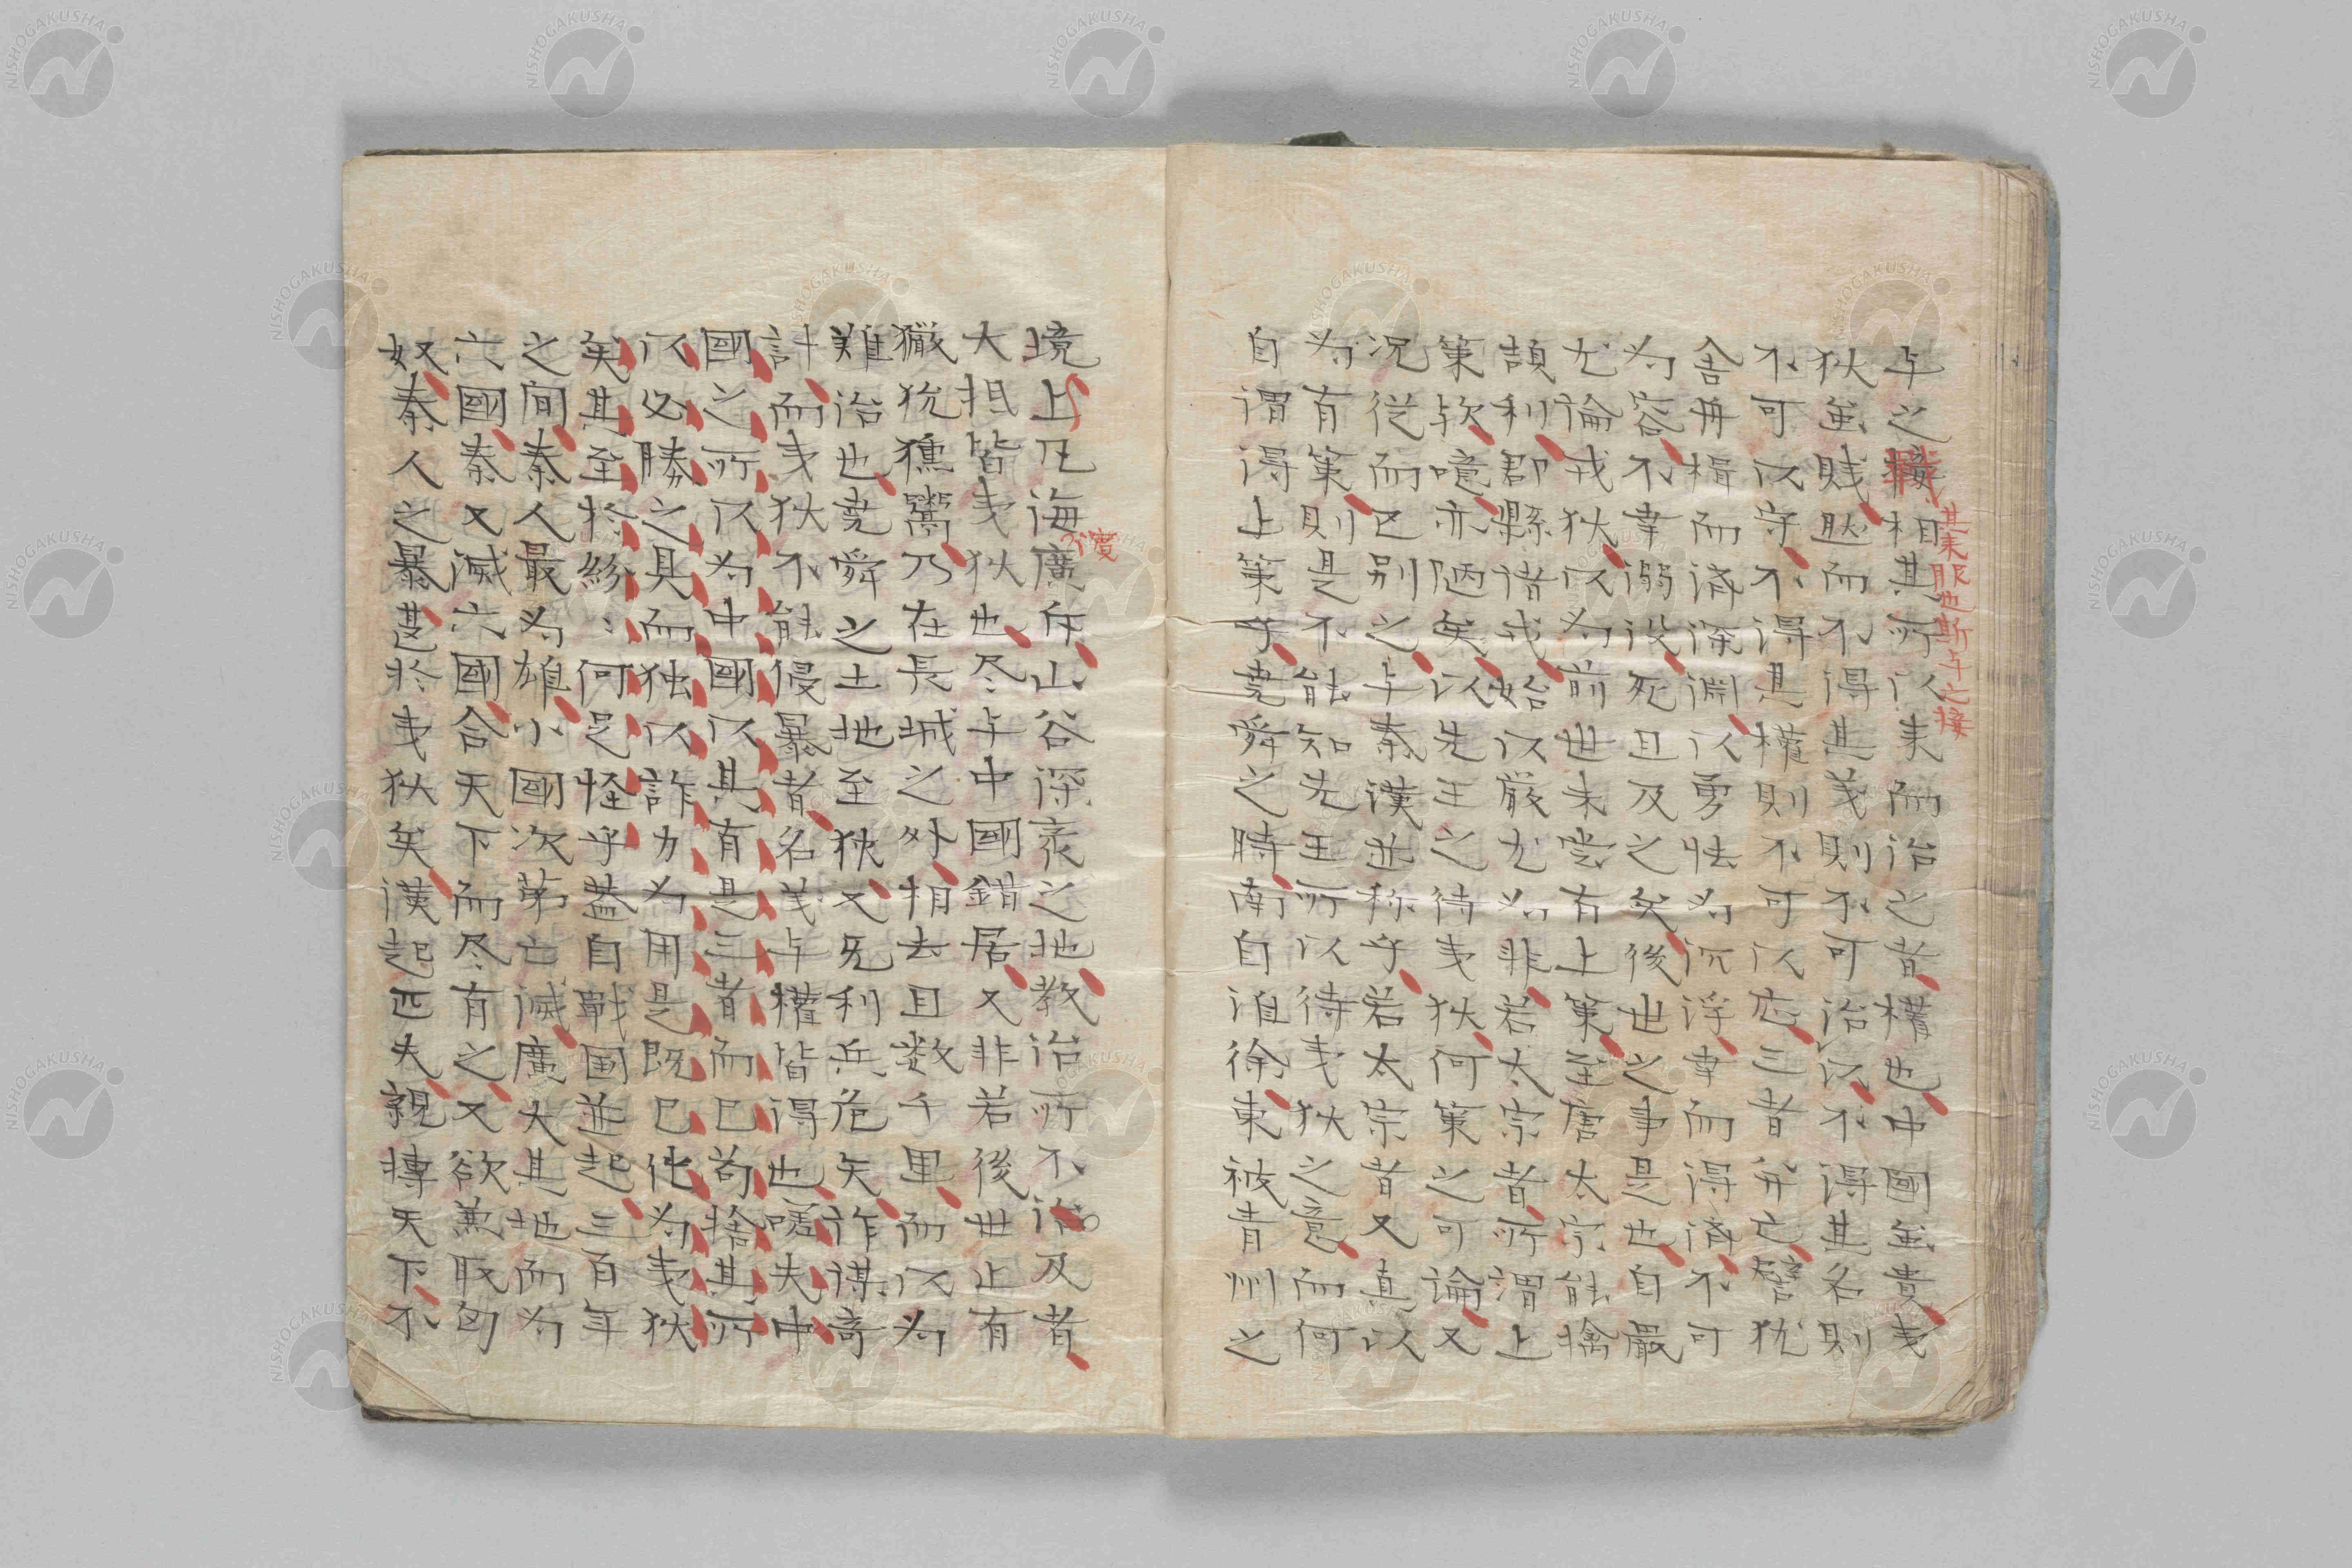 与之接相其所以来而治之者権也中國虽貴夷
其来服也斯与之接
狄虽賎㳤而不得其義則不可治以不得其名則
不可以守不得其權則不可以応三者弁亡譬犹
舎舟楫而済深淵以勇怯為沉浮幸而得済不可
為容不幸溺没死且及之矣後世之事是也自嚴
尤論戎狄以為前世未甞有上策至唐太宗能擒
頡利郡縣諸戎始以嚴尤為非若太宗者所謂上
策欤噫亦陋矣以先王之待夷狄何策之可論又
况従而区别之与秦漢並称乎若太宗者又真以
為有策則是不能知先王所以待夷狄之意而何
自謂得上策乎堯舜之時南自淮徐東被青州之
境上凡海廣斥山谷深衺之地教治所不治及者
不度
大抵皆夷狄也尽与中國錯居又非若後世止有
玁狁獯鬻乃在長城之外相去且数千里而以為
難治也堯舜之土地至狭又无利兵危矢詐謀奇
計而夷狄不能侵暴者名義与權皆得也嗟夫中
國之所以為中國以其有是三者而已苟捨其所
以必勝之具而独以詐力為用是既已化為夷狄
矣其至於紛〻何足怪乎葢自戰国並起三百年
之间秦人最為雄小國次第亡滅廣大其地而為
六國秦又滅六國合天下而尽有之又欲兼取匈
奴秦人之暴甚於夷狄矣漢起匹夫親摶天下不